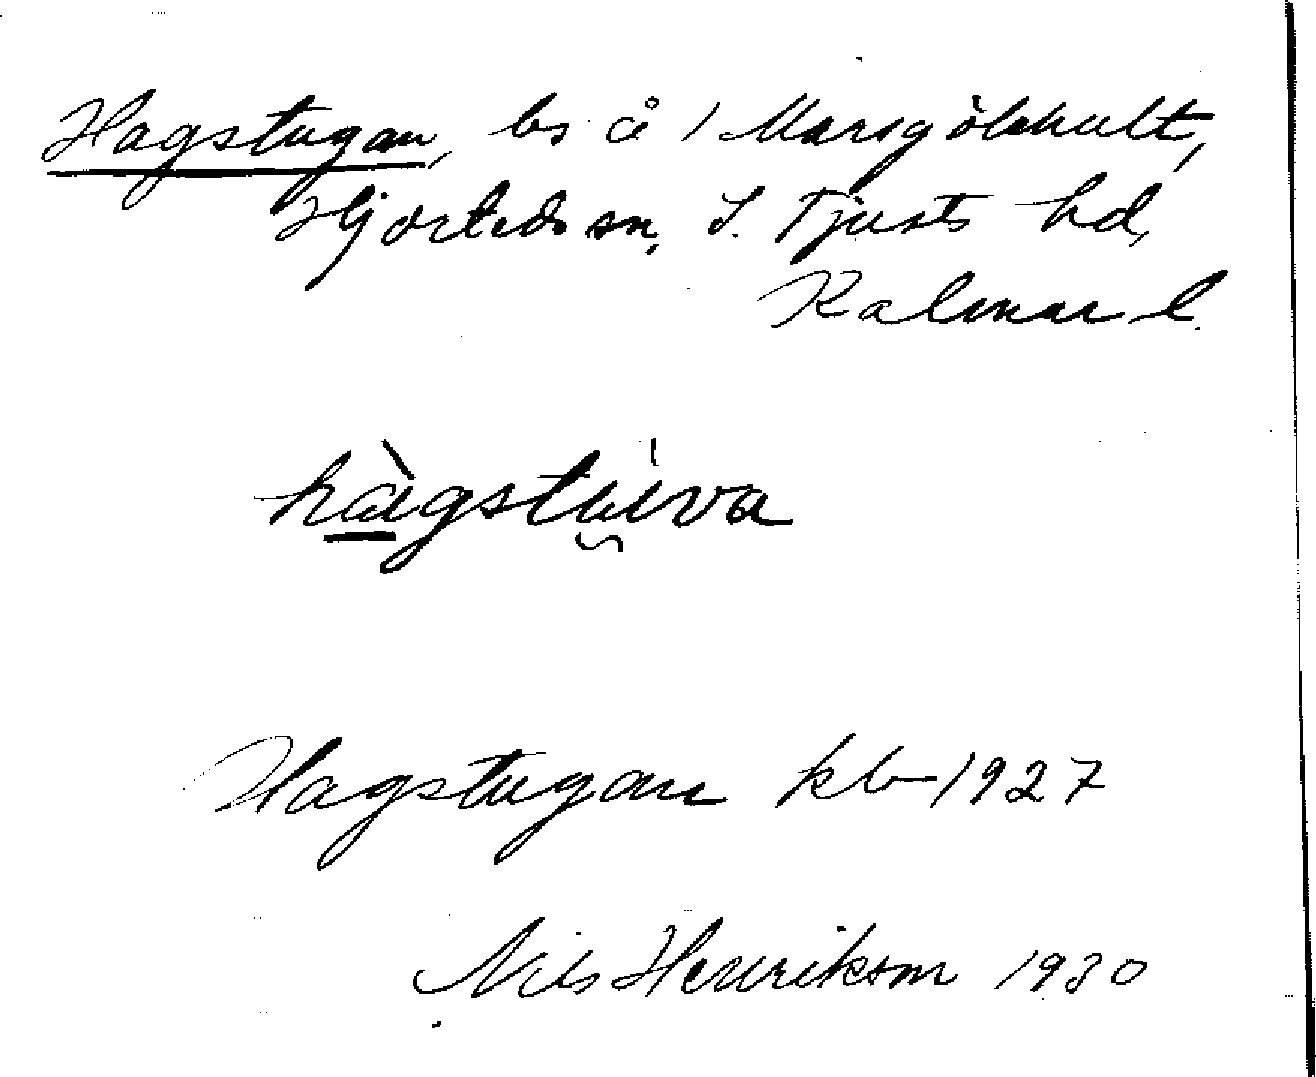 Hagstugan, bs å 1 Marsgölshult,
Hjorteds sn, S. Tjusts hd,
Kalmar l.
hàgstùva
Hagstugan kb 1927
Nils Henrikson 1930